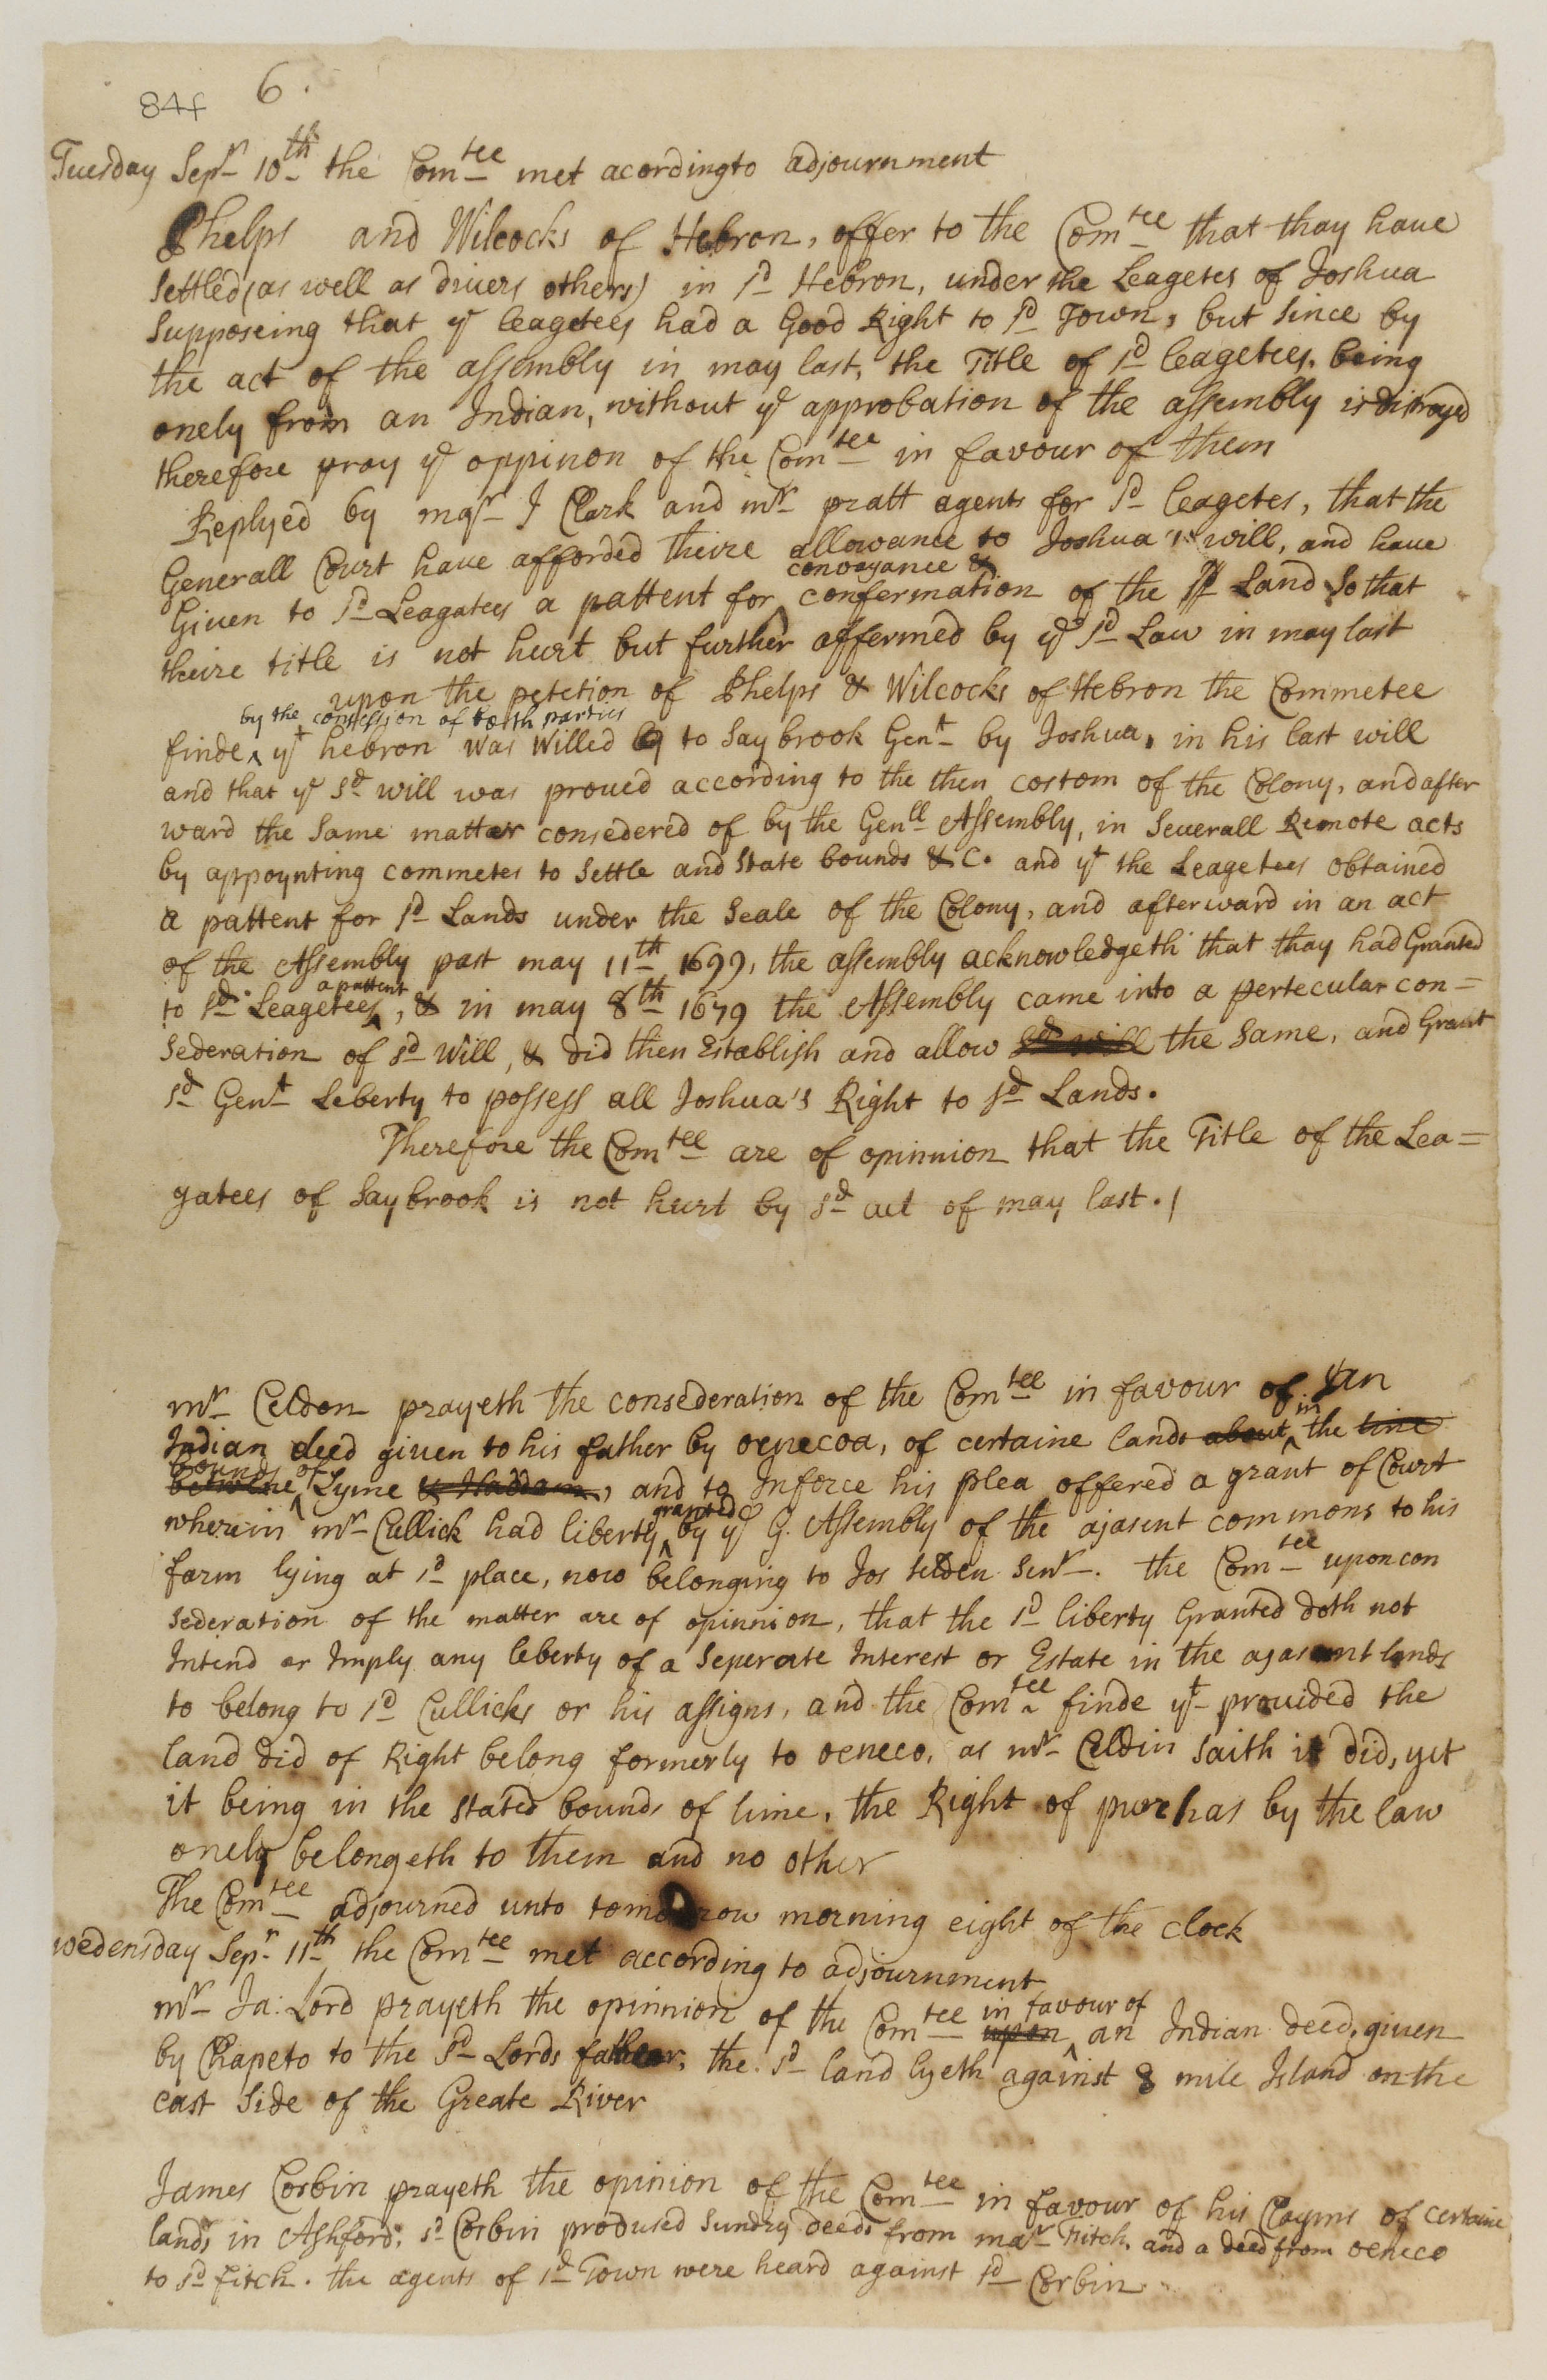 84f 6.
Tuesday Sepr 10th the Comtee met acordingto adjournment
Phelps and Wilcocks of Hebron, offer to the Comtee that thay haue
Settled (as well as diuers others) in sd Hebron, under the Leagetes of Joshua
Supposeing that ye leagetees had a Good Right to sd Town, but Since by
the act of the assembly in may last, the Title of sd leagetees, being
onely from an Indian, without ye approbation of the assembly is distroyed
therefore pray ye oppinon of the Comtee in favour of them
Replyed by majr J Clark and mr pratt agents for sd leagetes, that the
Generall Court haue afforded theire allowance to Joshua's will, and haue
conveyance &
Giuen to sd Leagatees a pattent for ‸ confermation of the sd Land So that
theire title is not hurt but further affermed by ye sd Law in may last
upon the petetion of Phelps & Wilcocks of Hebron the Commetee
by the confession of both parties
finde ‸ yt hebron was Willed to Saybrook Gent by Joshua, in his last will
and that ye sd will was proued according to the then costom of the Colony, and after
ward the Same matter consedered of by the Genll Assembly, in Seuerall Remote acts
by appoynting commetes to Settle and State bounds &c. and yt the Leagetees obtained
a pattent for sd Lands under the Seale of the Colony, and afterward in an act
of the Assembly past may 11th 1699, the assembly acknowledgeth that thay had Granted
a pattent
to sd Leagetees ‸, & in may 8th 1679 the Assembly came into a pertecular con=
sederation of sd will, & did then Establish and allow sd will the Same, and Grant
sd Gent Leberty to possess all Joshua's Right to sd Lands.
Therefore the Comtee are of opinnion that the Title of the Lea=
gatees of Saybrook is not hurt by sd act of may last./
mr Celdon prayeth the consederation of the Comtee in favour of an
in
Indian deed given to his father by oenecoa, of certaine lands about ‸ the line
bounds of
betwene ‸ Lyme & Haddam, and to Inforce his plea offered a grant of Court
granted
wherein mr Cullick had liberty ‸ by ye G. Assembly of the ajasent commons to his
farm lying at sd place, now belonging to Jos Selden Senr. the Comtee upon con
sederation of the matter are of opinnion, that the sd liberty Granted doth not
Intend or Imply any leberty of a Seperate Interest or Estate in the ajasent lands
to belong to sd Cullicks or his assigns, and the Comtee finde yt prouided the
land did of Right belong formerly to oeneco, as mr Celdin saith it did, yet
it being in the stated bounds of lime, the Right of purchas by the law
onely belongeth to them and no other
The Comtee adjourned unto tomorrow morning eight of the clock
wedensday Sepr 11th the Comtee met according to adjournment
in favour of
mr Ja: Lord prayeth the opinnion of the Comtee upon ‸ an Indian deed, giuen
by Chapeto to the sd Lords father, the sd land lyeth against 8 mile Island on the
east side of the Greate River
James Corbin prayeth the opinion of the Comtee in favour of his Clayms of certaine
lands in Ashford, sd Corbin prodused Sundry deeds from majr Fitch, and a deed from oeneco
to sd fitch. the agents of sd Town were heard against sd Corbin